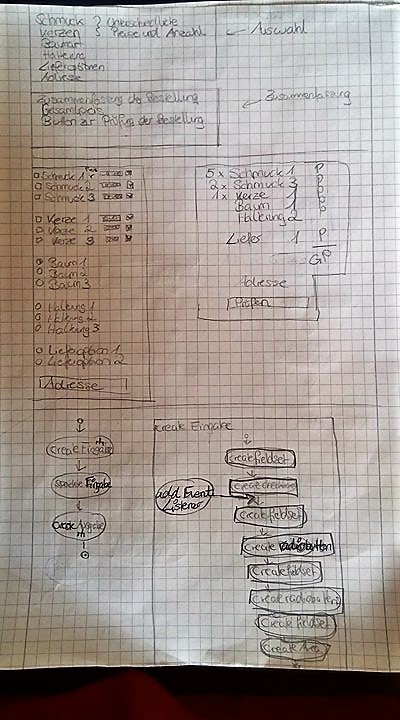 Schmuck } Unterschiedliche
Kerzen } Preise und Anzahl ← Auswahl
Baumart
Halterung
Lieferoptionen
Adresse
Zusammenfassung der Bestellung
Gesamtpreis
Button zur Prüfung der Bestellung
← Zusammenfassung
Schmuck 1
Schmuck 2
Schmuck 3
Kerze 1
Kerze 2
Kerze 3
Baum 1
Baum 2
Baum 3
Haltung 1
Haltung 2
Haltung 3
Lieferoption 1
Lieferoption 2
Adresse
5x Schmuck 1 P
2x Schmuck 3 P
1x Kerze 1 P
Baum 1 P
Halterung 2 P
Liefer 1 P
GP
Adresse
Prüfen
Create Eingabe
Eingabe
Create
create Eingabe
createfieldset
create
add Event
Listener
createfieldset
Create radiobutton
Createfieldset
Create radiobutton
Create fieldset
Create Area